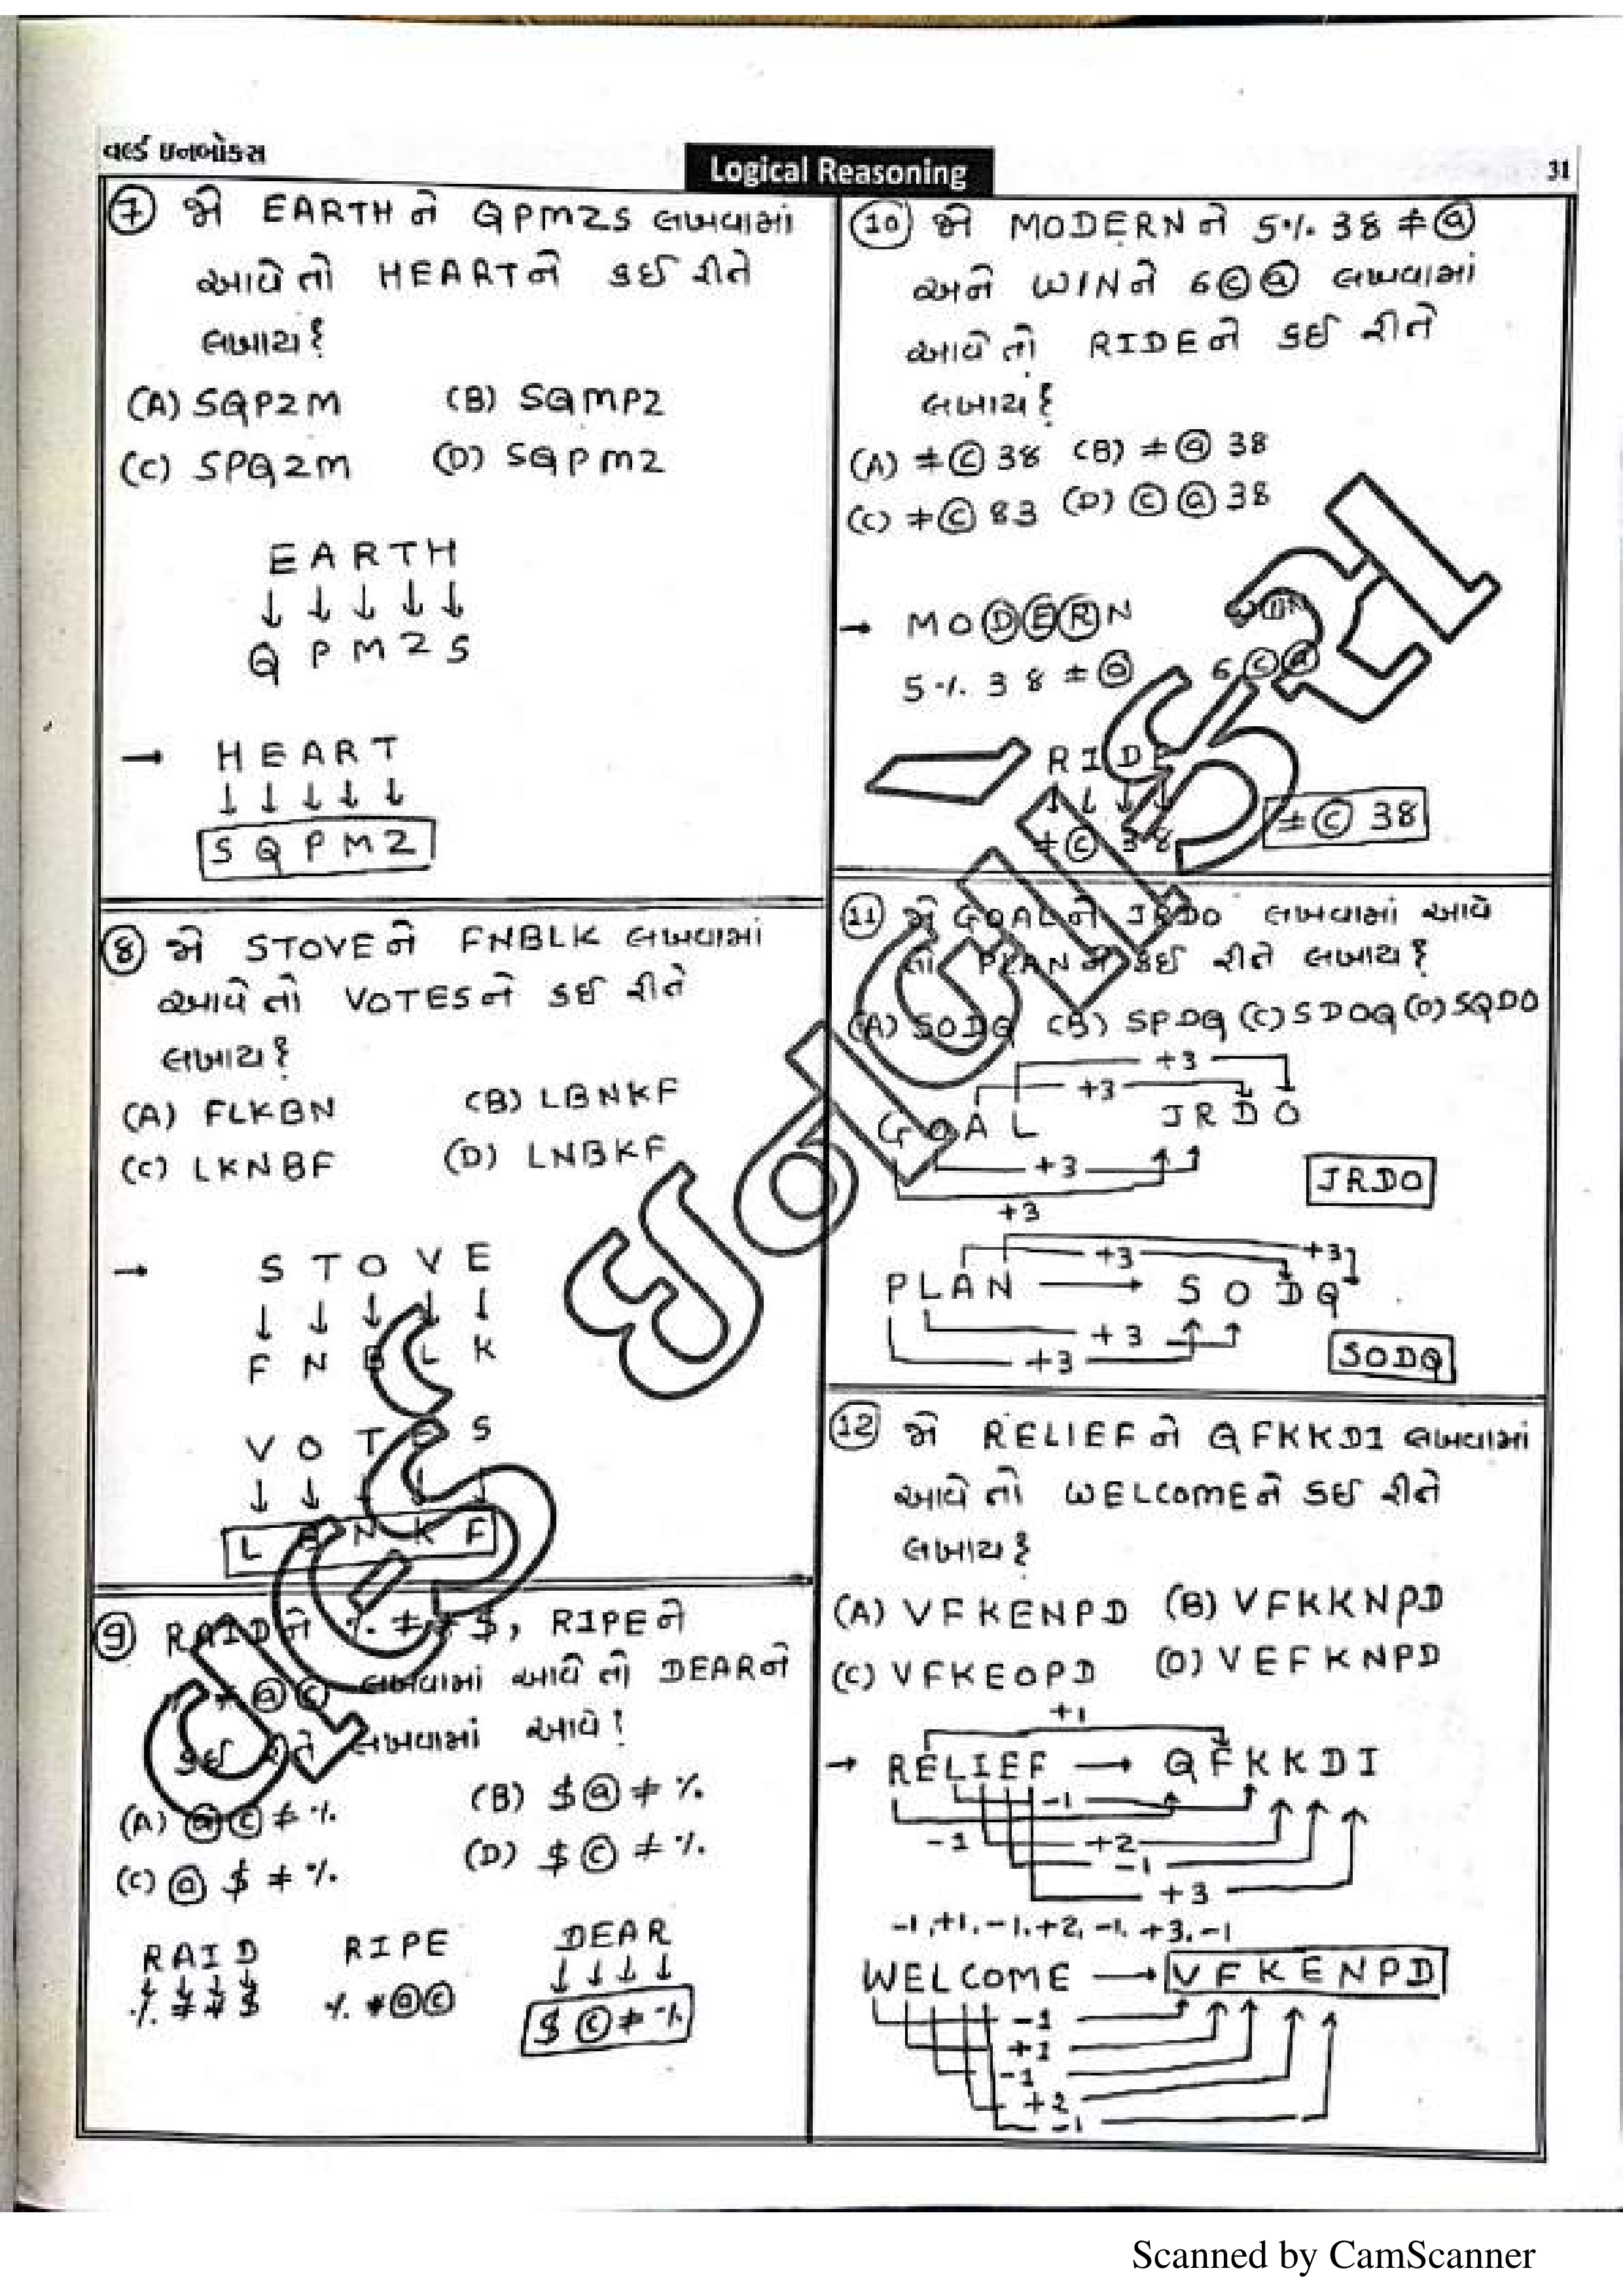 વર્લ્ડ ઇનબોક્સ
Logical Reasoning
31
(7) જો EARTH ને QPMZS લખવામાં
આવે તો HEART ને કઈ રીતે
લખાય?
(A) SQPZM (B) SQMPZ
(C) SPQZM (D) SQPMZ
E A R T H
↓ ↓ ↓ ↓ ↓
Q P M Z S
→ H E A R T
↓ ↓ ↓ ↓ ↓
S Q P M Z
(8) જો STOVE ને FNBLK લખવામાં
આવે તો VOTES ને કઈ રીતે
લખાય?
(A) FLKBN (B) LBNKF
(C) LKNBF (D) LNBKF
→ S T O V E
↓ ↓ ↓ ↓ ↓
F N B L K
V O T E S
↓ ↓ ↓ ↓ ↓
L B N K F
(9) RAID ને % ≠ # $, RIPE ને
લખવામાં આવે તો DEAR ને
કઈ રીતે લખવામાં આવે!
(A) @ © ≠ % (B) $ @ ≠ %
(C) @ $ ≠ % (D) $ © ≠ %
RAID RIPE DEAR
↓ ↓ ↓ ↓
$ © ≠ %
(10) જો MODERN ને 5 % 3 8 ≠ @
અને WIN ને 6 © @ લખવામાં
આવે તો RIDE ને કઈ રીતે
લખાય?
(A) ≠ © 38 (B) ≠ @ 38
(C) ≠ © 83 (D) © @ 38
→ MODERN WIN
5 % 3 8 ≠ @ 6 © @
R I D E
↓ ↓ ↓ ↓
≠ © 3 8 ≠ © 38
(11) જો GOAL ને JRDO લખવામાં આવે
તો PLAN ને કઈ રીતે લખાય?
(A) SODQ (B) SPDQ (C) SDOQ (D) SQDO
+3
+3
G O A L J R D O
+3
+3
JRDO
+3 +3
PLAN → S O D Q
+3
+3
SODQ
(12) જો RELIEF ને QFKKDI લખવામાં
આવે તો WELCOME ને કઈ રીતે
લખાય?
(A) VFKENPD (B) VFKKNPD
(C) VFKEOPD (D) VEFKNPD
+1
→ RELIEF → QFKKDI
-1
-1 +2
-1
+3
-1, +1, -1, +2, -1, +3, -1
WELCOME → VFKENPD
-1
+1
-1
+2
-1
Scanned by CamScanner